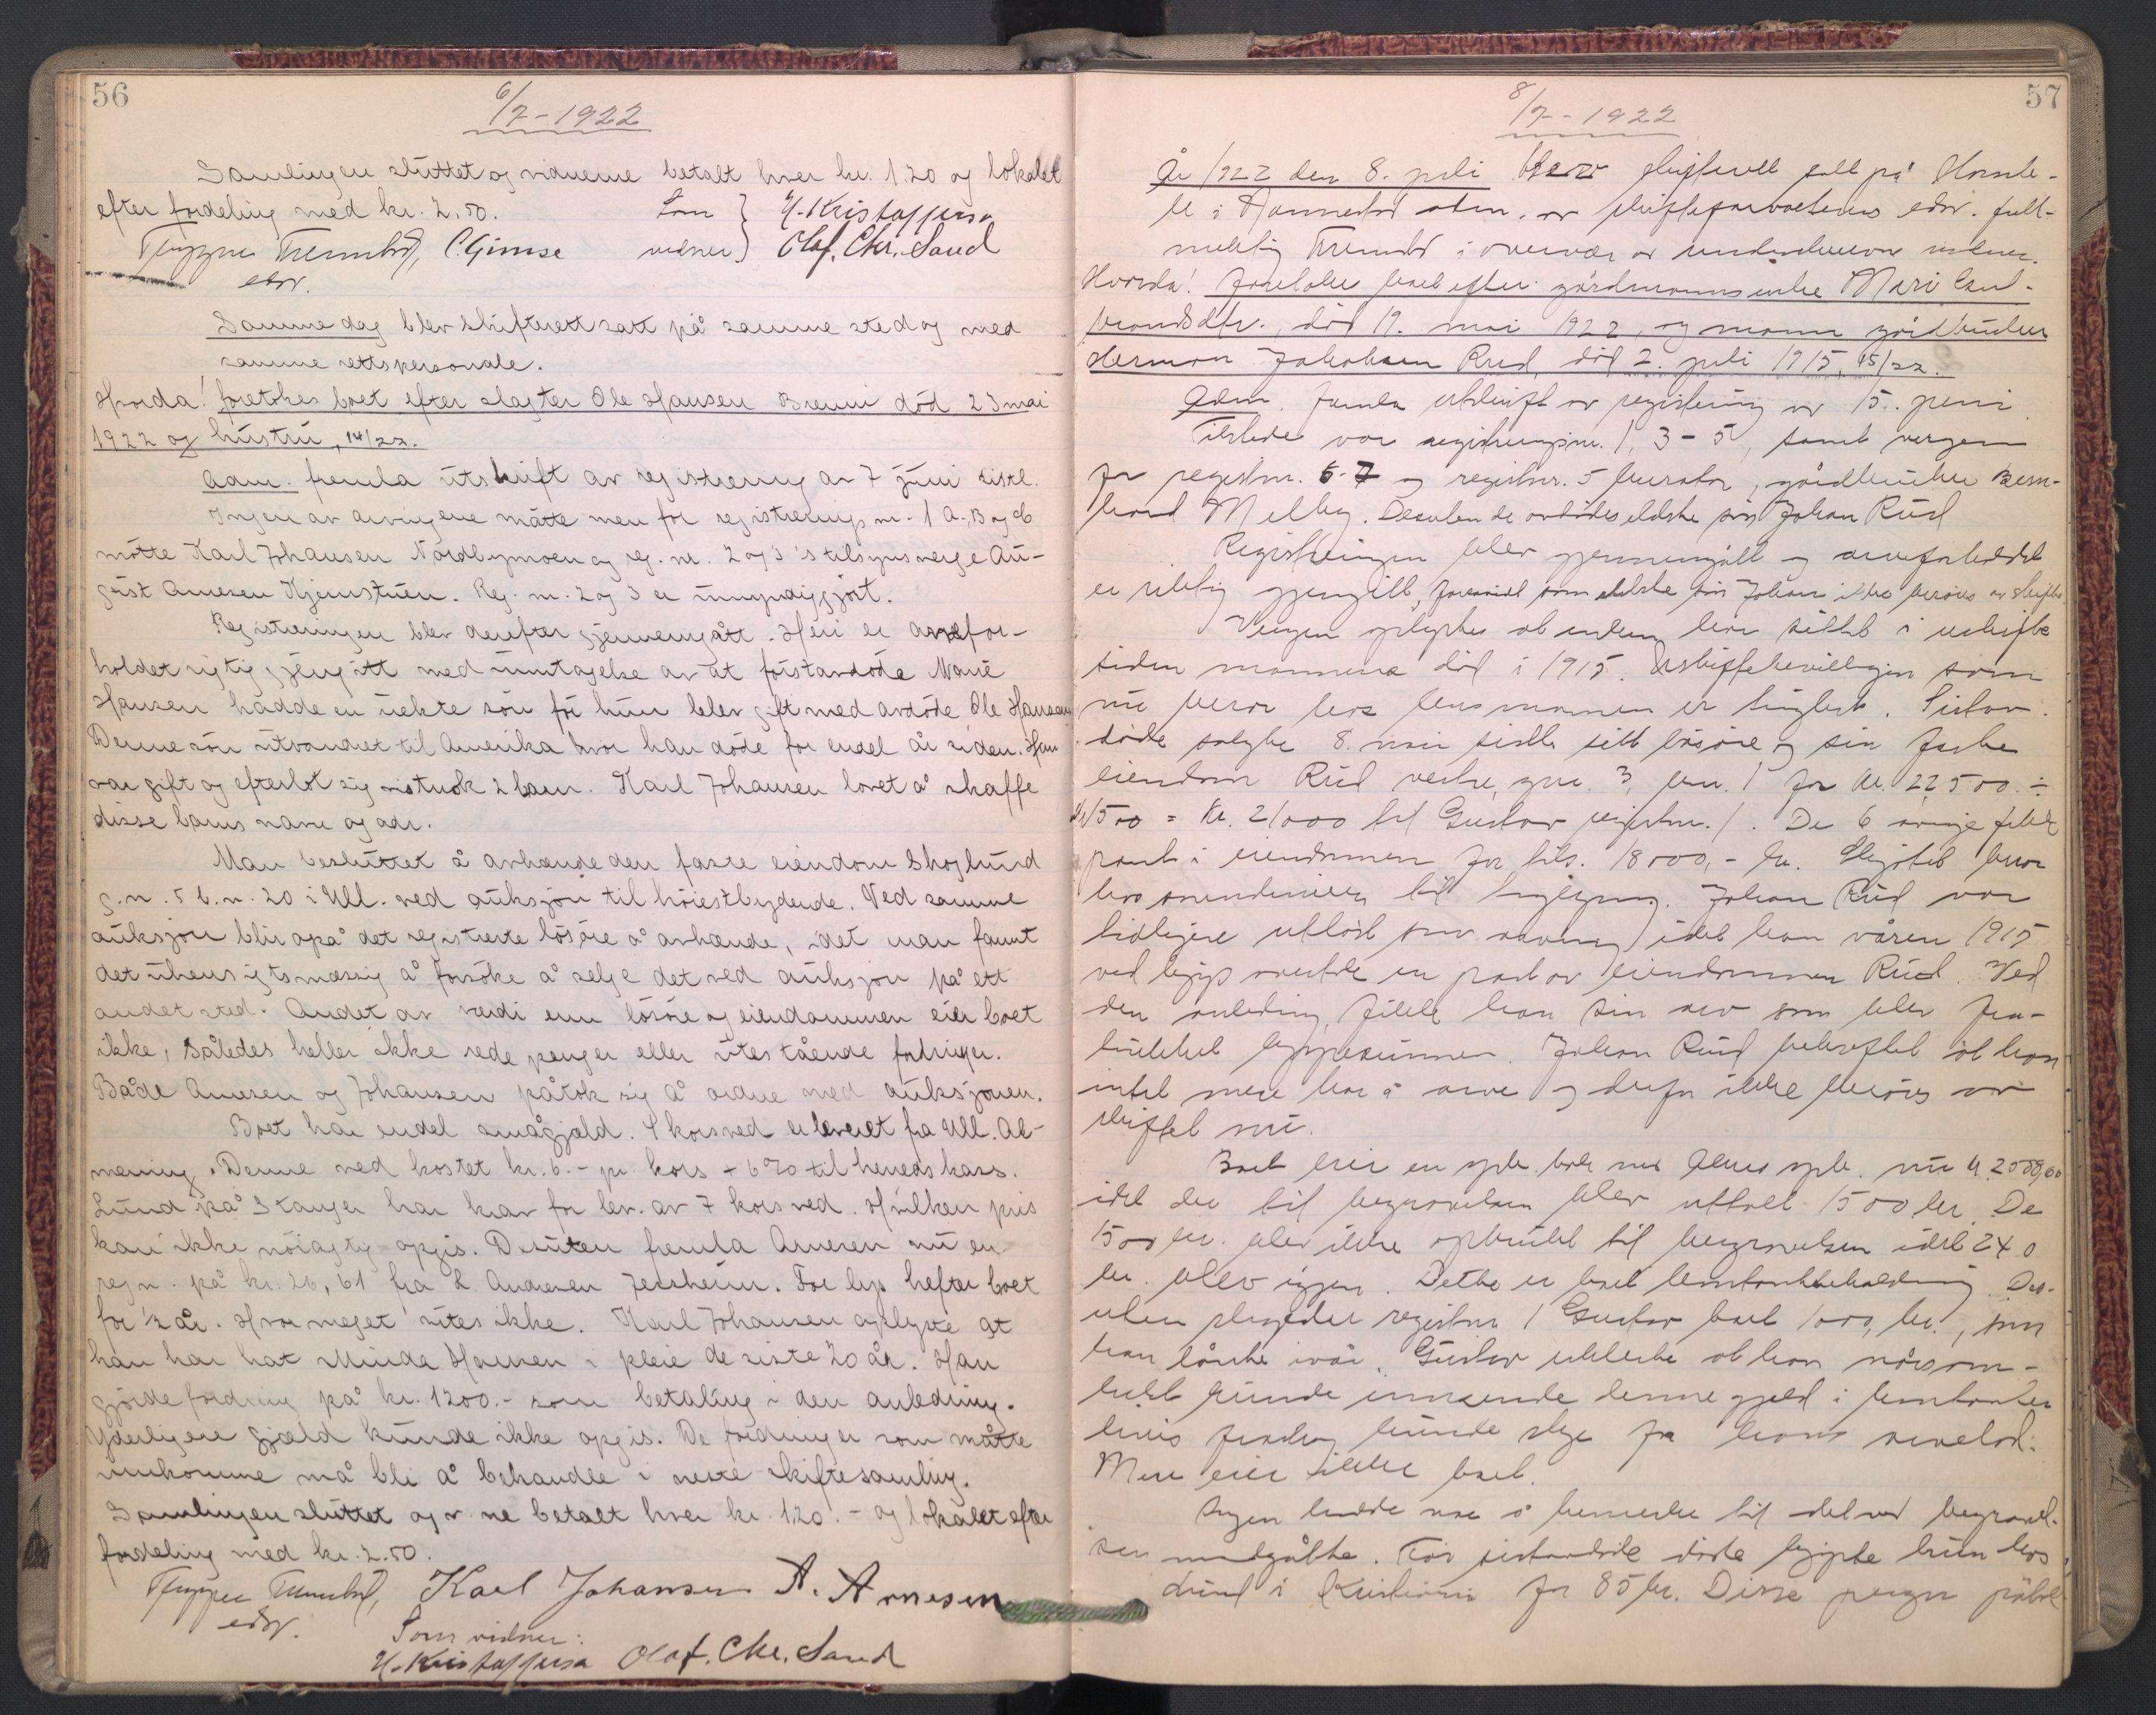 56
6/7-1922
Samlingen sluttet og vidnerne betalt hver kr. 1.20 og lokalet
efter fordeling med kr. 2.50. Som } H. Kristoffersa
Trumbd, C. Gimse vidner } Olaf. Chr. Sand
edsv.
Samme dag blev skifterett satt på samme sted og med
samme rettspersonale.
Hvorda! foretokes boet efter slagter Ole Hansen Brenni död 23 mai
1922 og hustru, 14/22.
Adm. fremla utskrift av registrering av 7 juni sistl.
Ingen av arvingene mötte men for registrerings nr. 1 a, B og c
mötte Karl Johansen Nordbymoen og reg. nr. 2 og 3's tilsynsverge Au-
gust Arnesen Kjernstuen. Reg. nr. 2 og 3 er umyndiggjort.
Registreringen blev derefter gjennemgått. Heri er arvefor-
holdet rigtig gjengitt med undtagelse av at förstavdöde Marie
Hansen hadde en uekte sön för hun blev gift med avdöde Ole Hansen
Denne sön utvandret til Amerika hvor han döde for endel år siden. Han
var gift og efterlot sig vistnok 2 barn. Karl Johansen lovet å skaffe
disse barns navn og adr.
Man besluttet å avhænde den faste eiendom Skoglund
g.n. 5 b.n. 20 i Ull. ved auksjon til höiestbydende. Ved samme
auksjon blir også det registrerte lösöre å avhænde, idet man fannt
det uhensigtsmæssig å forsöke å selge det ved auksjon på ett
andet sted. Andet av verdi enn lösöre og eiendommen eier boet
ikke, således heller ikke rede penger eller utestående fordringer.
Både Arnesen og Johansen påtok sig å ordne med auksjonen.
Boet har endel smågjæld. 1 kors ved er levert fra Ull. Al-
menning. Denne ved kostet kr. 6.- pr. kors + 6% til herreds kass.
Lund på Stanger har krav for lev. av 7 kors ved. Hvilken pris
kan ikke nöiagtig opgis. Desuten fremla Arnesen nu en
regn. på kr. 26,61 fra L. Andersen Jessheim. For lys hefter boet
for 1/2 år. Hvor meget vites ikke. Karl Johansen oplyste at
han har hat Minda Hansen i pleie de siste 20 år. Han
gjorde fordring på kr. 1200.- som betaling i den anledning.
Yderligere gjæld kunde ikke opgis. De fordringer som måtte
innkomme må bli å behandle i neste skiftesamling.
Samlingen sluttet og v. ne betalt hver kr. 1.20.- og lokalet efter
fordeling med kr. 2.50.
Trumbd, Karl Johansen A. Arnesen
edsv. Som vidner:
H. Kristoffersa Olaf. Chr. Sand
57
8/7-1922
År 1922 den 8. juli blev skifterett satt på
i Nannestad av skifteforvalterens edsv. full-
mektig Trumbd i overvær av undertegnede vidner.
Hvorda! foretokes boet efter gårdmannsenke Mari Gul-
brandsdtr., död 19. mai 1922, og mann gårdbruker
Herman Jakobsen Rud, död 2. juli 1915, 15/22.
Adm. framla utskrift av registrering av 15. juni
Tilstede var registreringsnr. 1, 3-5, samt vergen
for registnr. 6-7 og registnr. 5 kurator, gårdbruker Bern-
hard Melby. Desuten de avdödes eldste sön Johan Rud
Registreringen blev gjennemgått og arveforholdet
er riktig gjengitt, forsavidt som eldste sön Johan ikke berøres av skiftet.
Vergen oplystes at enken har sittet i uskifte
siden mannen död i 1915. Uskiftebevillingen som
nu beror hos lensmannen er tinglest. Sistav-
döde solgte 8. mai sistl. sitt lösöre og sin faste
eiendom Rud vestre, gnr. 3, bnr. 1 for kr. 22500.-
kr 1500 = kr. 21000 til Gustav registnr. 1. De 6 övrige fikk
pant i eiendommen for tils. 18000,- kr. Skjötet beror
hos sorenskriveren til tinglysning. Johan Rud var
tidligere utlöst som arving idet han våren 1915
ved kjöp overtok en part av eiendommen Rud. Ved
den anledning fikk han sin arv som blev fra-
trukket kjöpesummen. Johan Rud bekreftet at han
intet mere har å arve og derfor ikke berøres av
skiftet nu.
Boet eier en spb. bok med spb. nu kr. 2500,00
idet der til begravelsen blev uttatt 1500 kr. De
1500 kr. blev ikke opbrukt til begravelsen idet 240
kr. blev igjen. Dette er boets kontantbeholdning. Des-
uten skylder registnr 1 Gustav boet 1000, kr., som
han lånte ivår. Gustav erklærte at han nårsom-
helst kunde innsende denne gjeld i kontanter
hvis fradrag kunde skje fra hans arvelod.
Mere eier ikke boet.
Ingen hadde noe å bemerke til det ved begravel-
sen medgåtte. För sistavdöde döde kjöpte hun hos
Lund i Kristiania for 85 kr. Disse penger påtok